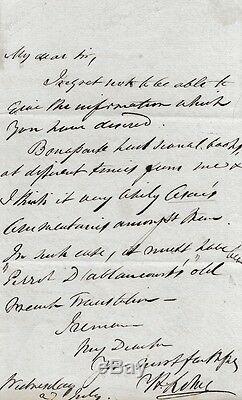 My dear Sir,
I regret not to be able to
give the information which
you have desired.
Bonaparte had several books
at different times from me &
I think it very likely Cæsar's
Commentaries amongst them
In such case, it must have been
"Perrot D'ablancourt's" old
French translation —
I remain
My Dear Sir
Your most
Wednesday
2d July.